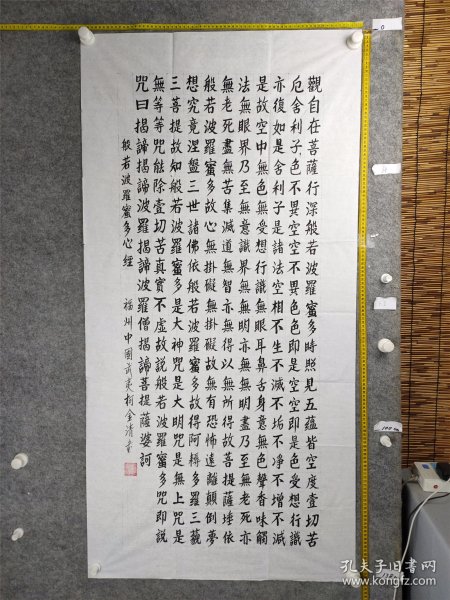 觀自在菩薩行深般若波羅蜜多時照見五蘊皆空度壹切苦
厄舍利子色不異空空不異色色即是空空即是色受想行識
亦復如是舍利子是諸法空相不生不滅不垢不净不增不減
是故空中無色無受想行識無眼耳鼻舌身意無色聲香味觸
法無眼界乃至無意識界無無明亦無無明盡乃至無老死亦
無老死盡無苦集滅道無智亦無得以無所得故菩提薩埵依
般若波羅蜜多故心無掛礙無掛礙故無有恐怖遠離顛倒夢
想究竟涅盤三世諸佛依般若波羅蜜多故得阿耨多羅三藐
三菩提故知般若波羅蜜多是大神咒是大明咒是無上咒是
無等等咒能除壹切苦真實不虛故說般若波羅蜜多咒即說
咒曰揭諦揭諦波羅揭諦波羅僧揭諦菩提薩婆訶
般若波羅蜜多心經
福州中國
孔夫子旧书网
https://book.kongfz.com